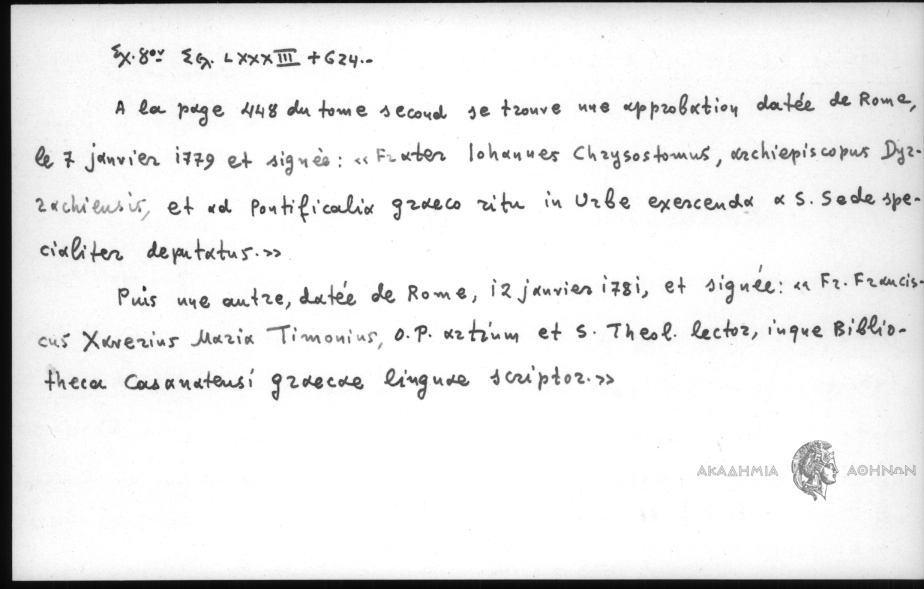 Σχ. 8ον Σελ. LXXXIII + 624.-
A la page 448 du tome second se trouve une approbation datée de Rome,
le 7 janvier 1779 et signée: « Frater Iohannes Chrysostomus, archiepiscopus Dyr-
rachiensis, et ad Pontificalia graeco ritu in Urbe exercenda a S. Sede spe-
cialiter deputatus.»
Puis une autre, datée de Rome, 12 janvier 1781, et signée: « Fr. Francis-
cus Xaverius Maria Timonius, O.P. artium et S. Theol. lector, inque Biblio-
theca Casanatensi graecae linguae scriptor.»
ΑΚΑΔΗΜΙΑ ΑΘΗΝΩΝ